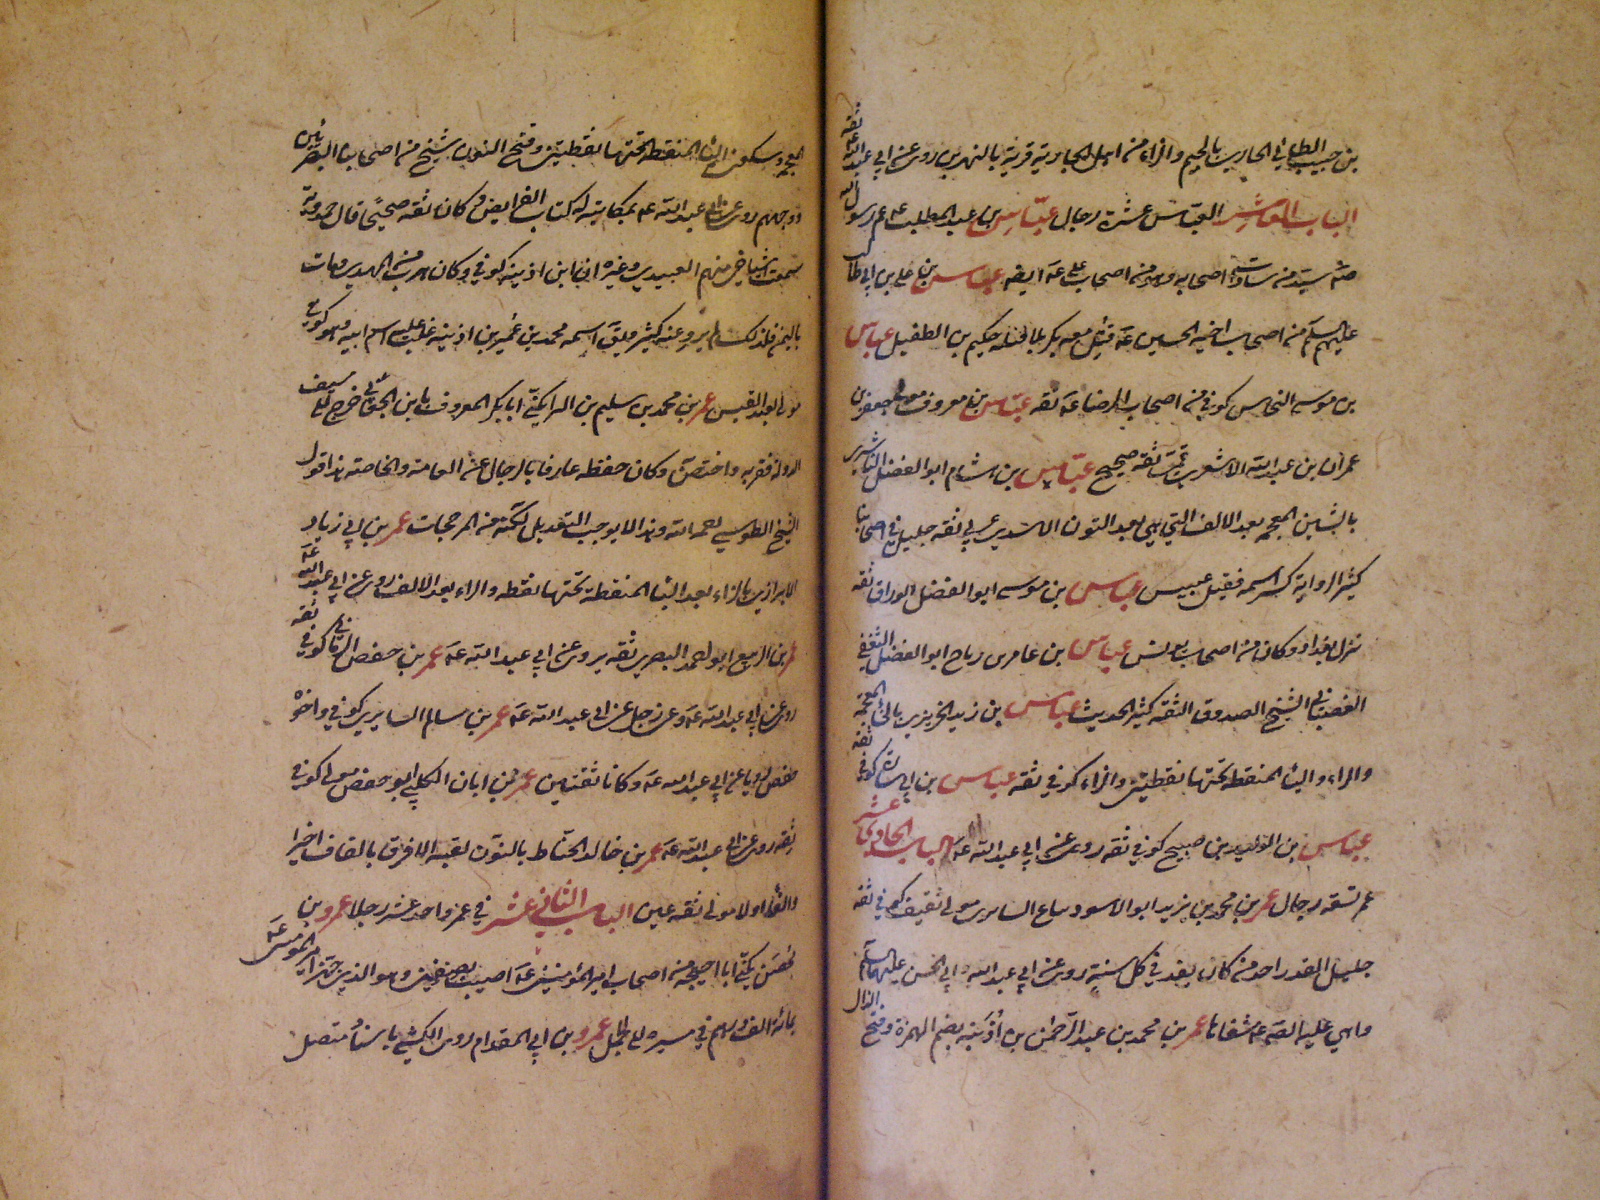 بن حبيب الطائي الجازي بالجيم والزاء من اهل الجازية قرية بالنهرين روى عن ابي عبد الله عه ثقه
الباب العاشر العباس عشرة رجال عباس بن عبد المطلب عم رسول الله
صه سيد من سادات اصحابه وهو من اصحاب علي عه ايضه عباس بن علي بن ابي طالب
عليهم السلم من اصحاب اخيه الحسين عه قتل معه بكربلا قتله حكيم بن الطفيل عباس
بن موسى النخاس كوفي من اصحاب الرضا عه ثقه عباس بن معروف مولى جعفر بن
عمران بن عبد الله الاشعري قمي ثقه صحيح عباس بن هشام ابو الفضل الناشري
بالشين المعجمه بعد الالف التي هي بعد النون الاسدي عربي ثقه جليل في اصحابنا
كثير الرواية كسر اسمه فقيل عبيس عباس بن موسى ابو الفضل الوراق ثقه
نزل بغداد وكان من اصحاب يونس عباس بن عامر بن رباح ابو الفضل الثقفي
القصباني الشيخ الصدوق الثقه كثير الحديث عباس بن زيد الخريزي بالخاء المعجمه
والراء والياء المنقطه تحتها نقطتين والزاء كوفي ثقه عباس بن ابي سارة كوفي ثقه
عباس بن الوليد بن صبيح كوفي ثقه روى عن ابي عبد الله عه الباب الحادي عشر
عمر تسعة رجال عمر بن محمد بن يزيد ابو الاسود بياع السابري مولى ثقيف كوفي ثقه
جليل القدر احد من كان يفد في كل سنة روى عن ابي عبد الله وابي الحسن عليهما السلم
واثنى عليه الصه عه شفاها عمر بن محمد بن عبد الرحمن بن اُذَينة بضم الهمزة وفتح الذال
المعجمه وسكون الياء المنقطه تحتها نقطتين وفتح النون شيخ من اصحابنا البصريين
ووجههم روى عن ابي عبد الله عه بمكاتبة له كتاب الفرايض وكان ثقه صحيحًا قال حمدويه
سمعت اشياخي منهم العبيدي وغيره ان ابن اذينه كوفي وكان هرب من المهدي ومات
باليمن فلذلك لم يرو عنه كثير ويق اسمه محمد بن عُمَر بن اذينه غلب عليه اسم ابيه وهو كوفي
مولى لعبد القيس عمر بن محمد بن سليم بن البرا يكنى ابا بكر المعروف بابن الجعابي خرج الى سيف
الدولة فقربه واختص به وكان حفظه عارفا بالرجال من العامة والخاصة هذا قول
الشيخ الطوسي رحمه الله وهذا لا يوجب التعديل لكنه من المرجحات عمر بن ابي زياد
الابزازي بالزاء بعد الباء المنقطة تحتها نقطه والراء بعد الالف روى عن ابي عبد الله عه
عمر بن الربيع ابو احمد البصري ثقه يروى عن ابي عبد الله عه عمر بن حفص الرماني كوفي ثقه
روى عن ابي عبد الله عه وعن رجل عن ابي عبد الله عه عمر بن سالم السابري كوفي واخوه
حفص رويا عن ابي عبد الله عه وكانا ثقتين عمر بن ابان الكلبي ابو حفص مولى كوفي
ثقه روى عن ابي عبد الله عه عمر بن خالد الحناط بالنون لقبه الافرق بالقاف اخيرا
والفاء اولا مولى ثقه عين الباب الثاني عشر في عمرو احد عشر رجلا عمرو بن
مُحصَن يكنى ابا احيحه من اصحاب امير المؤمنين عه اصيب بصفين وهو الذي جهز امير المؤمنين عه
بمائة الف درهم في مسيره الى الجمل عمرو بن ابي المقدام روى الكشي باسناد متصل